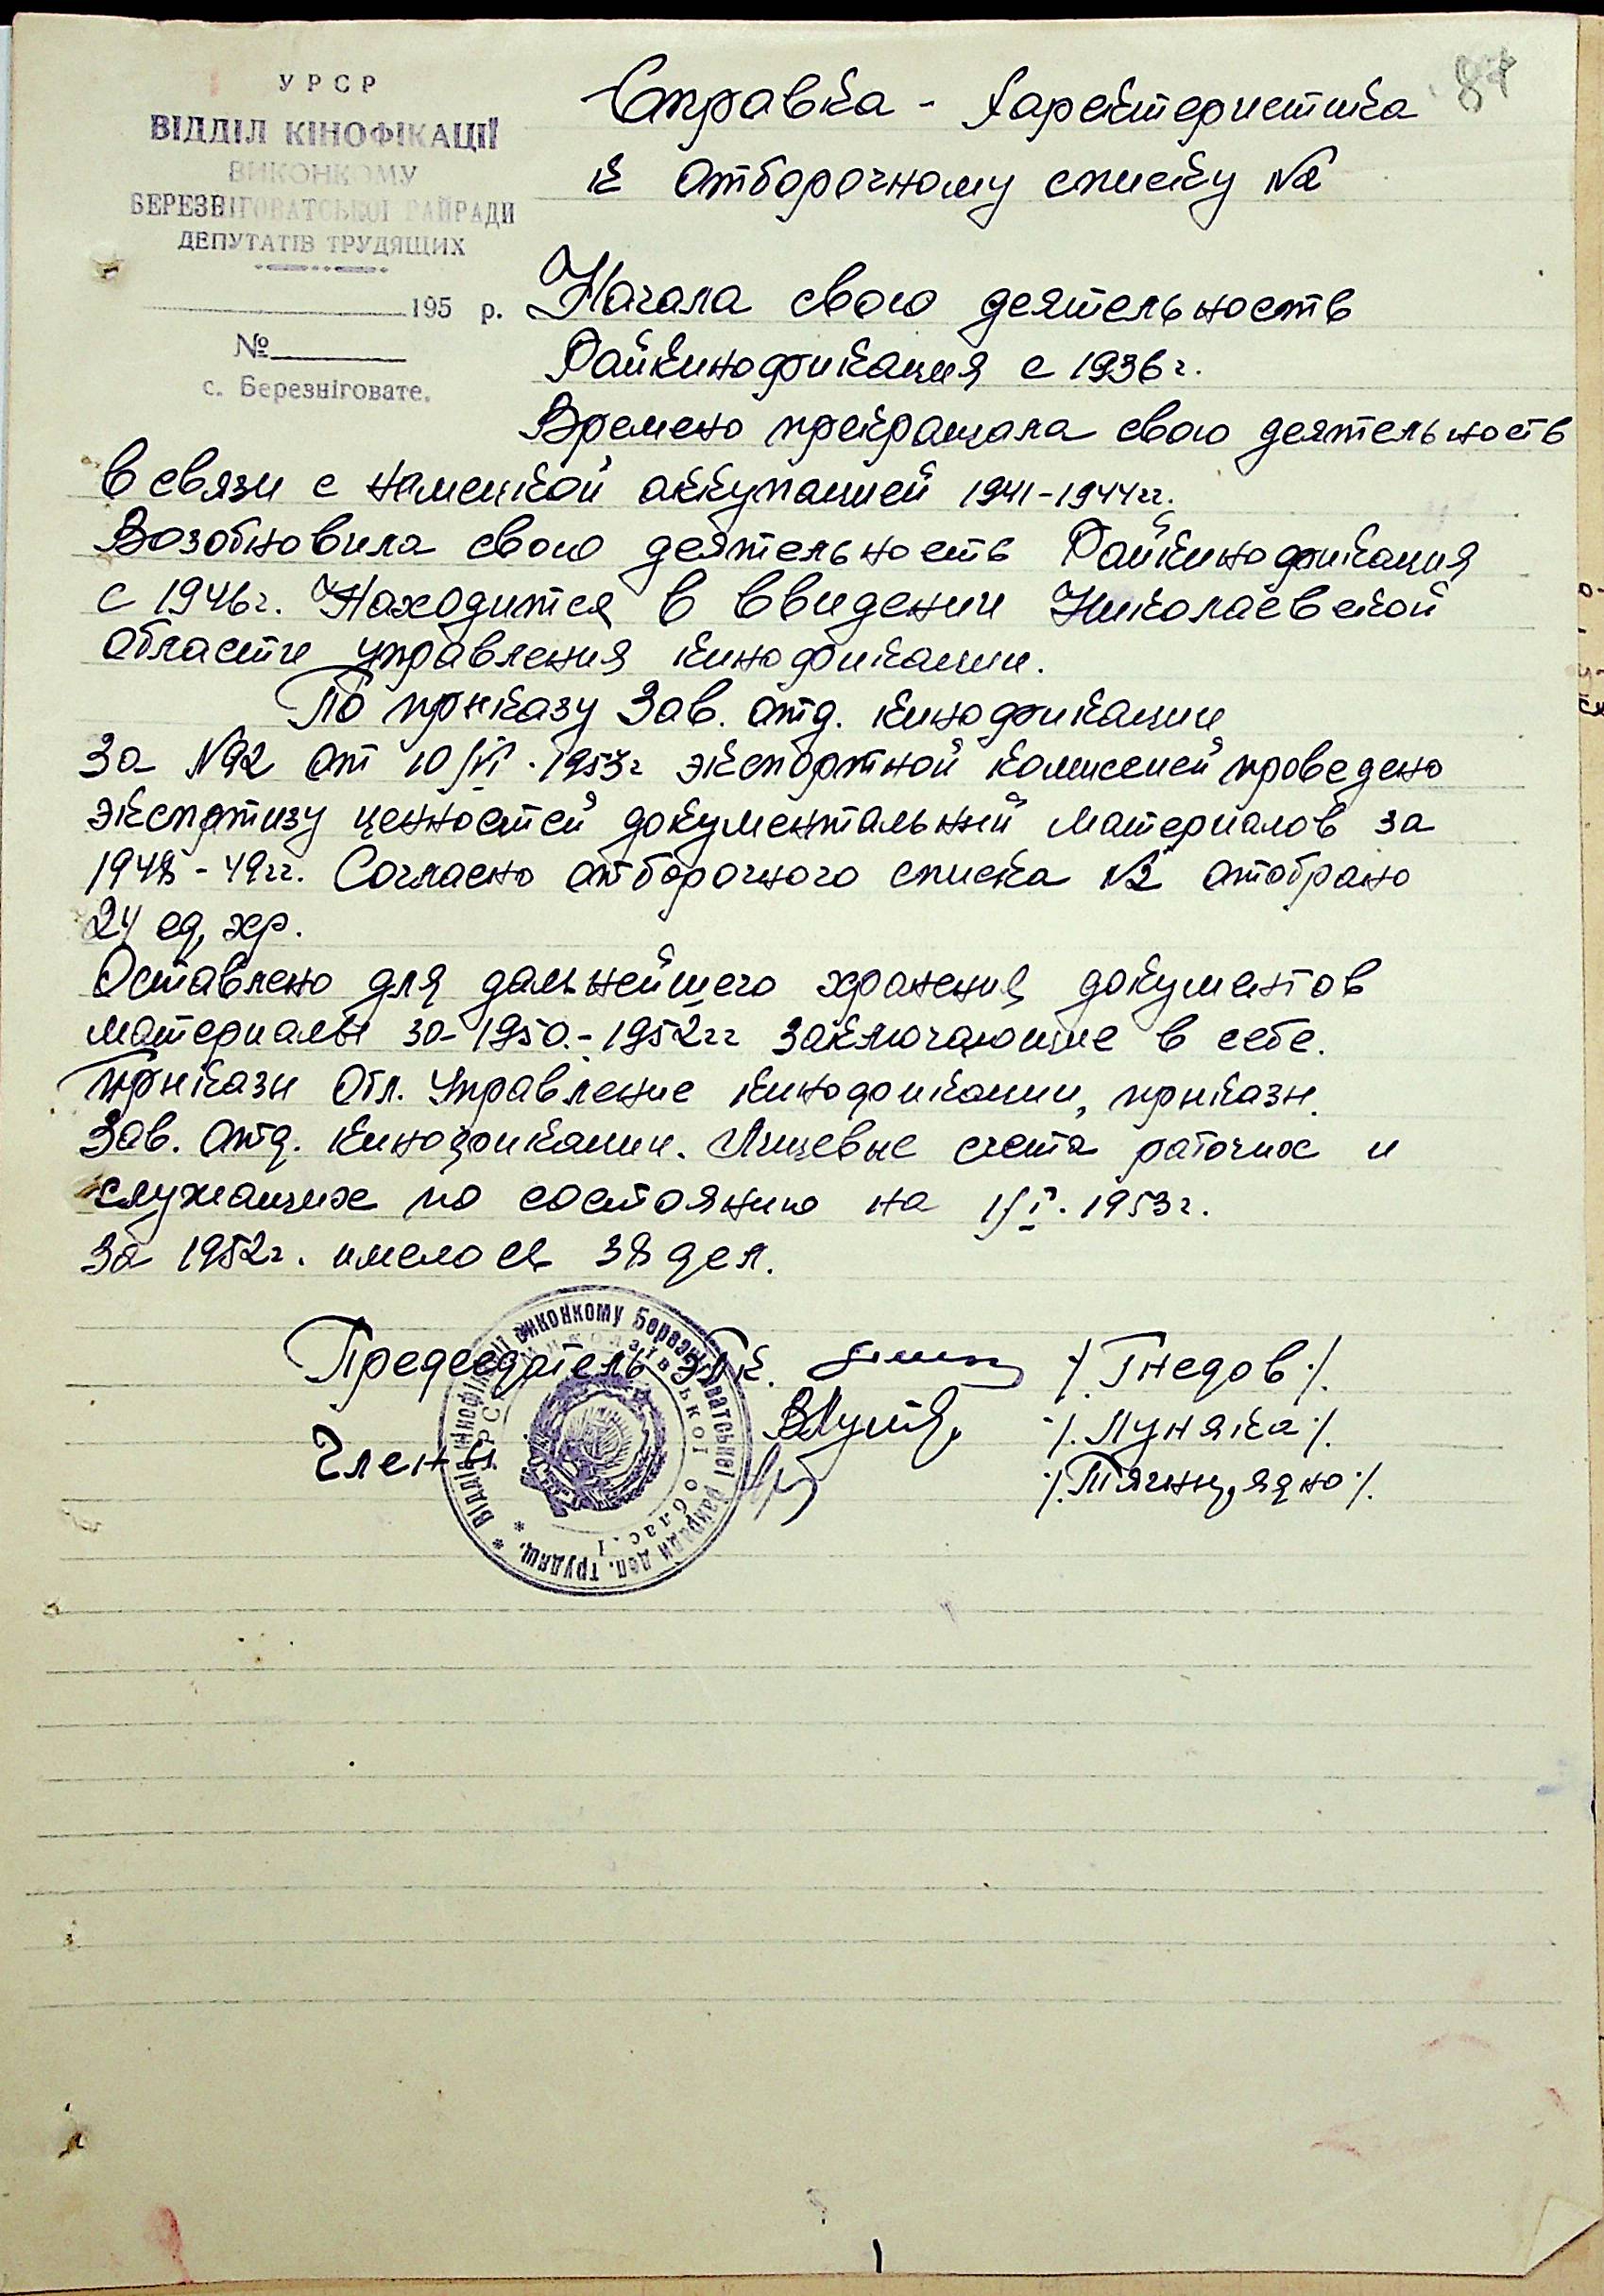 87
УРСР
ВІДДІЛ КІНОФІКАЦІЇ
ВИКОНКОМУ
БЕРЕЗНІГОВАТСЬКОЇ РАЙРАДИ
ДЕПУТАТІВ ТРУДЯЩИХ
195 р.
№
с. Березніговате.
Справка - Характеристика
к отборочному списку №2
Начала свою деятельность
Райкинофикация с 1936г.
Времено прекращала свою деятельность
в связи с намецкой аккупацией 1941-1944гг.
Возобновила свою деятельность Райкинофикация
с 1946г. Находится в ввидении Николаевской
области управления кинофикации.
По приказу Зав. отд. кинофикации
за №92 от 10/VI.1953г экспортной комиссией проведено
экспртизу ценностей документальный материалов за
1948-49гг. Согласно отборочного списка №2 отобрано
24 ед, хр.
Оставлено для дальнейшего хранения документов
материалы за 1950.-1952гг заключающие в себе.
приказы Обл. Управление кинофикации, приказы
Зав. отд. кинофикации. Лицевые счета рабочих и
служащих по состоянию на 1/I.1953г.
За 1952г. имелось 38 дел.
Председатель ЭПК. /.Гнедов./.
/.Луняка./.
Члены /.Тягны,ядно./.
* Відділ кінофікації виконкому Березніговатської райради деп. трудящ. *
УРСР Миколаївської області